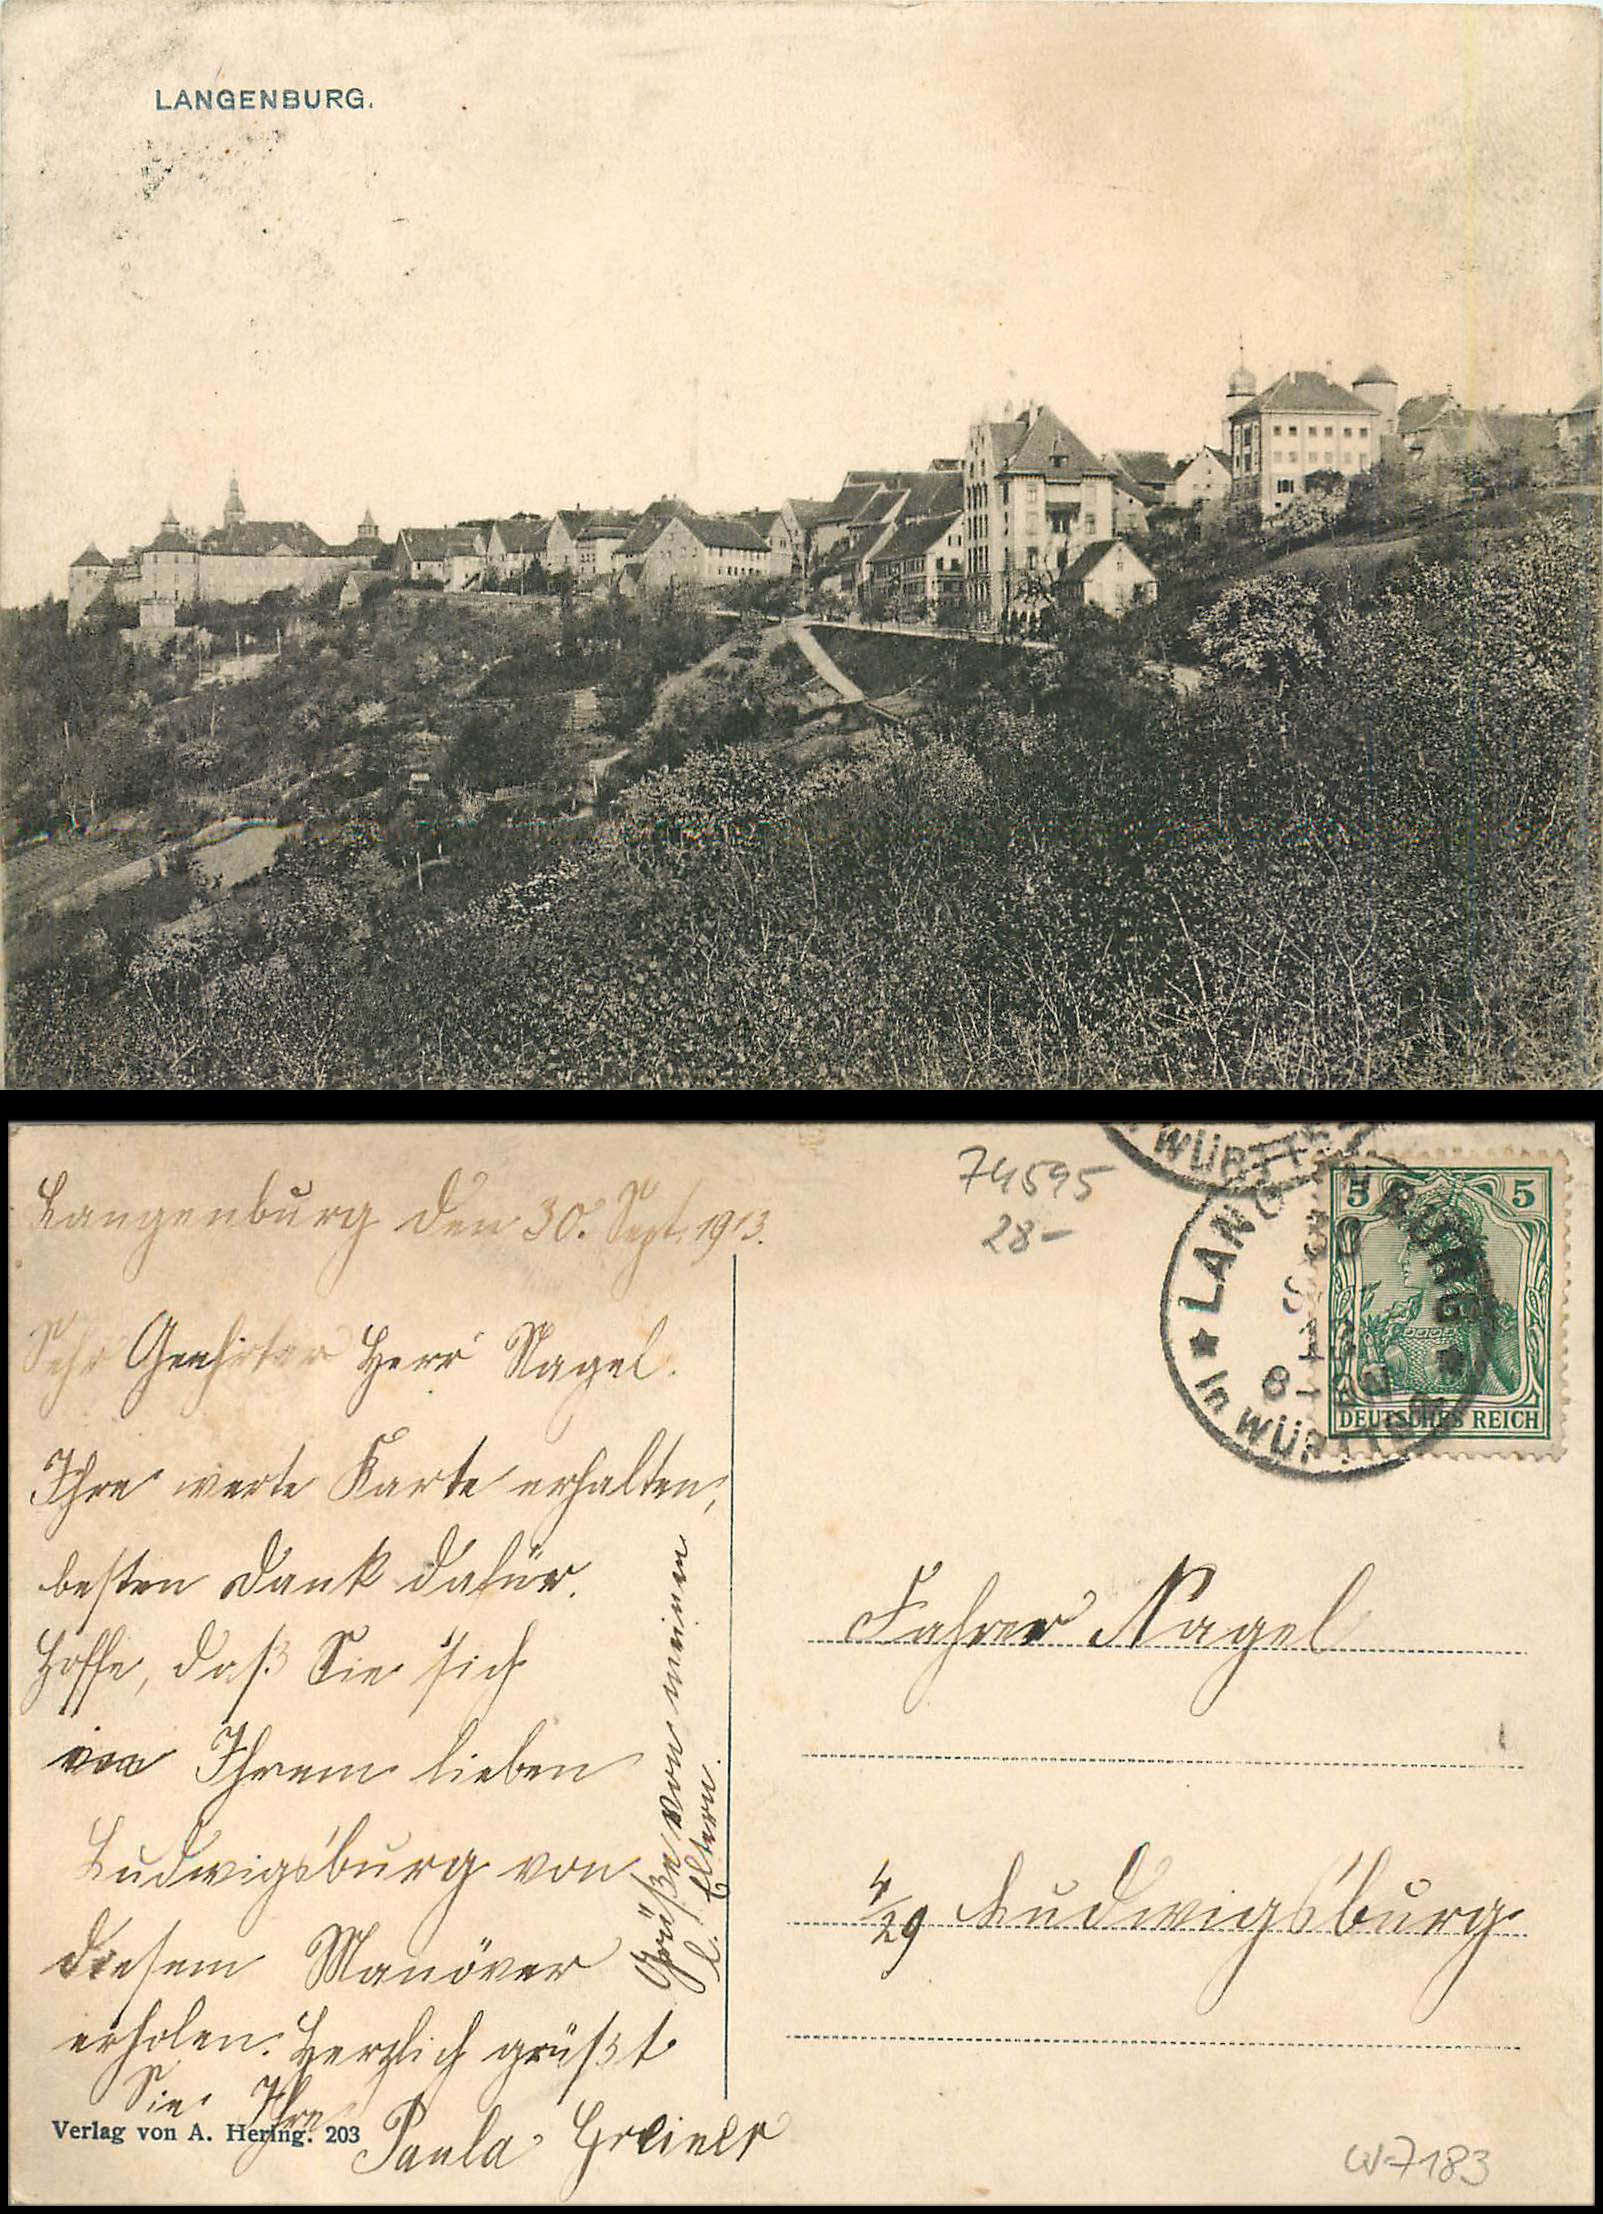 LANGENBURG.
Langenburg den 30. Sept. 1913.
Sehr Geehrter Herr Nagel.
Ihre werte Karte erhalten,
besten Dank dafür.
Hoffe, daß Sie sich
in Ihrem lieben
Ludwigsburg von
diesem Manöver
erholen. Herzlich grüßt
Sie Ihre
Paula Greiner
Grüße von meinen
l. Eltern.
Verlag von A. Hering. 203
74595
28-
WÜRTT
LANGENBURG
In WÜRTTEM
5 5
DEUTSCHES REICH
Fahrer Nagel
4/29 Ludwigsburg
W7183